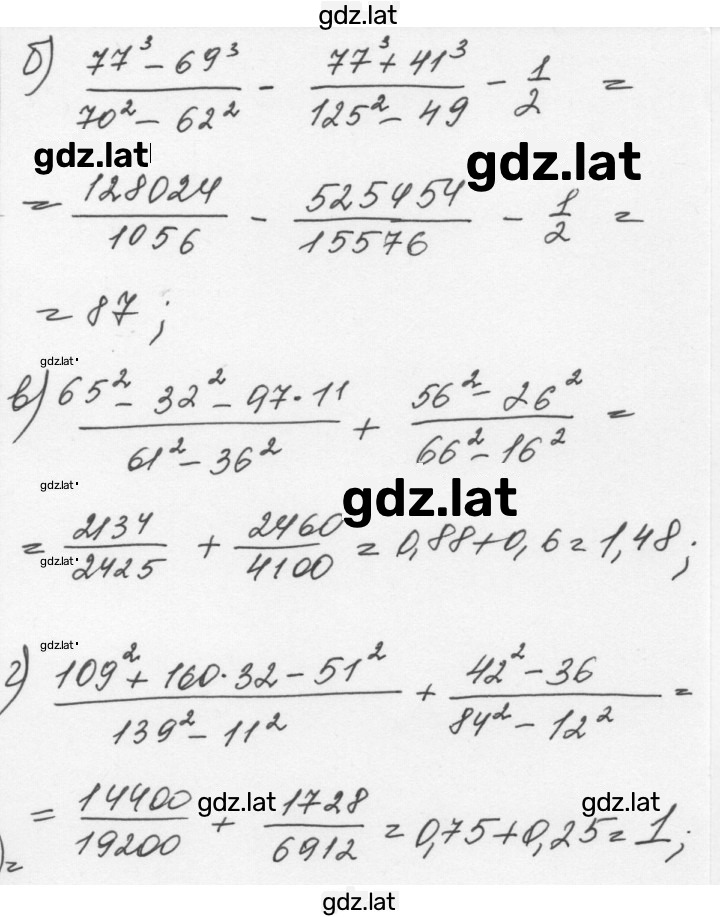 gdz.lat
б) (77³ − 69³)/(70² − 62²) − (77³ + 41³)/(125² − 49) − 1/2 =
gdz.lat gdz.lat
= 128024/1056 − 525454/15576 − 1/2 =
= 87;
gdz.lat
в) (65² − 32² − 97·11)/(61² − 36²) + (56² − 26²)/(66² − 16²) =
gdz.lat gdz.lat
= 2134/2425 + 2460/4100 = 0,88 + 0,6 = 1,48;
gdz.lat
gdz.lat
г) (109² + 160·32 − 51²)/(139² − 11²) + (42² − 36)/(84² − 12²) =
gdz.lat gdz.lat
= 14400/19200 + 1728/6912 = 0,75 + 0,25 = 1;
gdz.lat